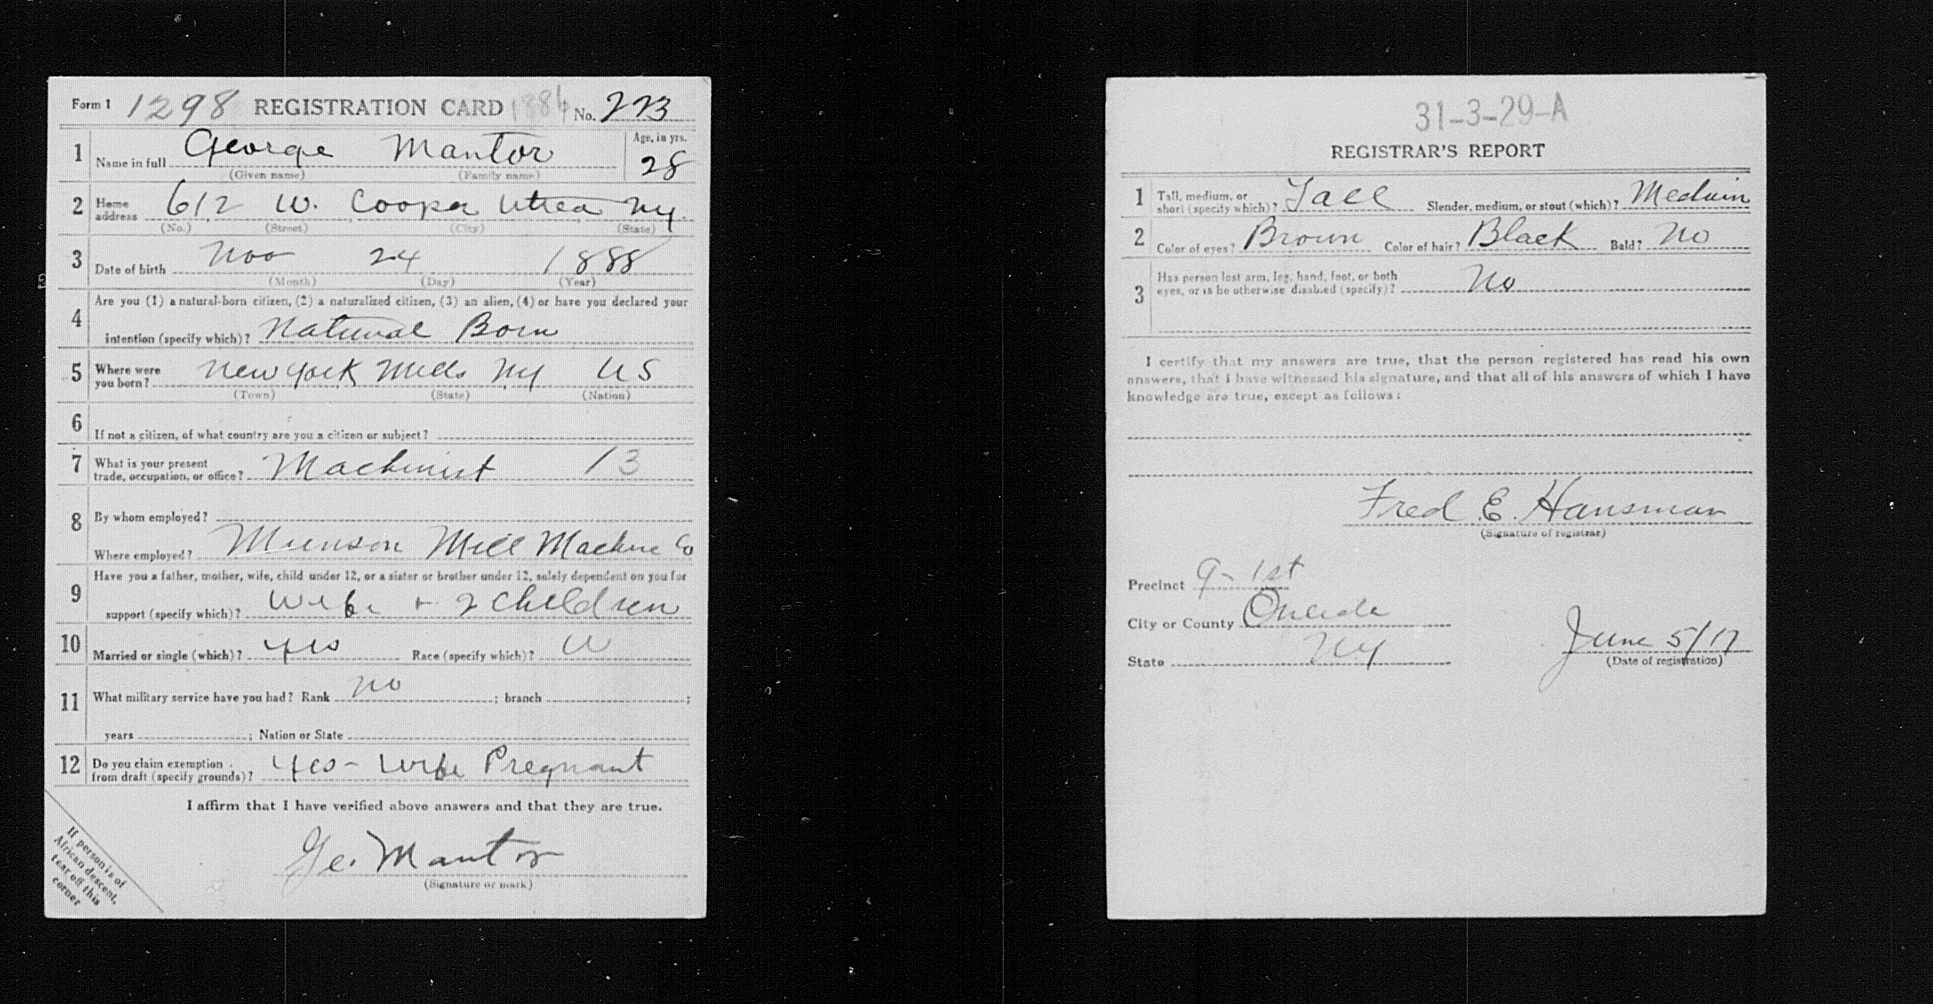 Form 1 1298 REGISTRATION CARD 1886 No. 223
1 Name in full George Mantor Age, in yrs. 28
(Given name) (Family name)
2 Home address 612 W. Cooper Utica NY.
(No.) (Street) (City) (State)
3 Date of birth Nov 24 1888
(Month) (Day) (Year)
4 Are you (1) a natural-born citizen, (2) a naturalized citizen, (3) an alien, (4) or have you declared your
intention (specify which)? Natural Born
5 Where were you born? New York Mills NY US
(Town) (State) (Nation)
6 If not a citizen, of what country are you a citizen or subject?
7 What is your present trade, occupation, or office? Machinist 13
8 By whom employed?
Where employed? Munson Mill Machine Co
9 Have you a father, mother, wife, child under 12, or a sister or brother under 12, solely dependent on you for
support (specify which)? Wife + 2 Children
10 Married or single (which)? yes Race (specify which)? W
11 What military service have you had? Rank no ; branch ;
years ; Nation or State
12 Do you claim exemption from draft (specify grounds)? Yes - Wife Pregnant
I affirm that I have verified above answers and that they are true.
Ge. Mantor
(Signature or mark)
If person is of
African descent,
tear off this
corner
31-3-29-A
REGISTRAR'S REPORT
1 Tall, medium, or short (specify which)? Tall Slender, medium, or stout (which)? Medium
2 Color of eyes? Brown Color of hair? Black Bald? No
3 Has person lost arm, leg, hand, foot, or both
eyes, or is he otherwise disabled (specify)? No
I certify that my answers are true, that the person registered has read his own
answers, that I have witnessed his signature, and that all of his answers of which I have
knowledge are true, except as follows:
Fred E. Hansman
(Signature of registrar)
Precinct 9-1st
City or County Oneida
State NY
June 5/17
(Date of registration)